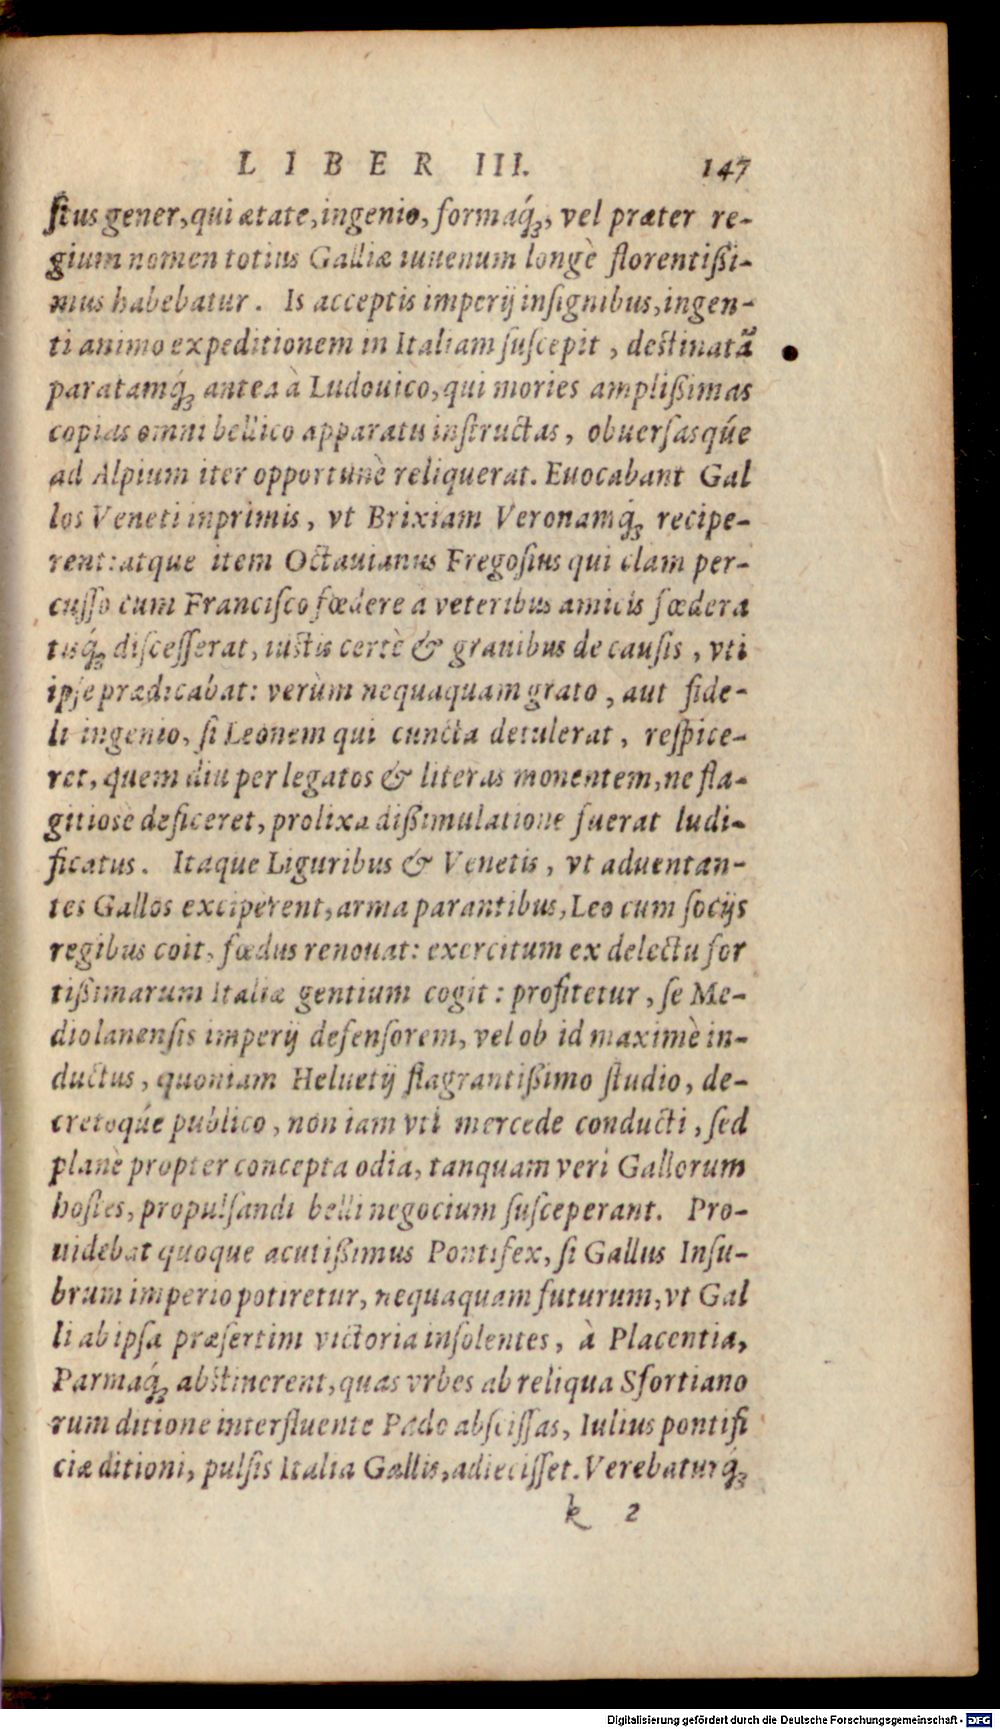 LIBER III. 147
ſtus gener, qui ætate, ingenio, formaq́ꝫ, vel præter re-
gium nomen totius Galliæ iuuenum longè florentißi-
mus habebatur. Is acceptis imperij inſignibus, ingen-
ti animo expeditionem in Italiam ſuſcepit, deſtinatã
paratamq́ꝫ antea à Ludouico, qui mories amplißimas
copias omni bellico apparatu inſtructas, obuerſasqúe
ad Alpium iter opportunè reliquerat. Euocabant Gal
los Veneti inprimis, vt Brixiam Veronamq́ꝫ recipe-
rent: atque item Octauianus Fregoſius qui clam per-
cuſſo cum Franciſco fœdere a veteribus amicis fœdera
tisq́ꝫ diſceſſerat, iuſtis certè & grauibus de cauſis, vti
ipſe prædicabat: verùm nequaquam grato, aut fide-
li ingenio, ſi Leonem qui cuncta detulerat, reſpice-
ret, quem diu per legatos & literas monentem, ne fla-
gitiosè deficeret, prolixa dißimulatione fuerat ludi-
ficatus. Itaque Liguribus & Venetis, vt aduentan-
tes Gallos exciperent, arma parantibus, Leo cum ſocijs
regibus coit, fœdus renouat: exercitum ex delectu for
tißimarum Italiæ gentium cogit: profitetur, ſe Me-
diolanenſis imperij defenſorem, vel ob id maximè in-
ductus, quoniam Heluetij flagrantißimo ſtudio, de-
cretoqúe publico, non iam vti mercede conducti, ſed
planè propter concepta odia, tanquam veri Gallorum
hoſtes, propulſandi belli negocium ſuſceperant. Pro-
uidebat quoque acutißimus Pontifex, ſi Gallus Inſu-
brum imperio potiretur, nequaquam futurum, vt Gal
li ab ipſa præſertim victoria inſolentes, à Placentia,
Parmaq́ꝫ abſtinerent, quas vrbes ab reliqua Sfortiano
rum ditione interfluente Pado abſciſſas, Iulius pontifi
ciæ ditioni, pulſis Italia Gallis, adieciſſet. Verebaturq́ꝫ
k 2
Digitalisierung gefördert durch die Deutsche Forschungsgemeinschaft - DFG